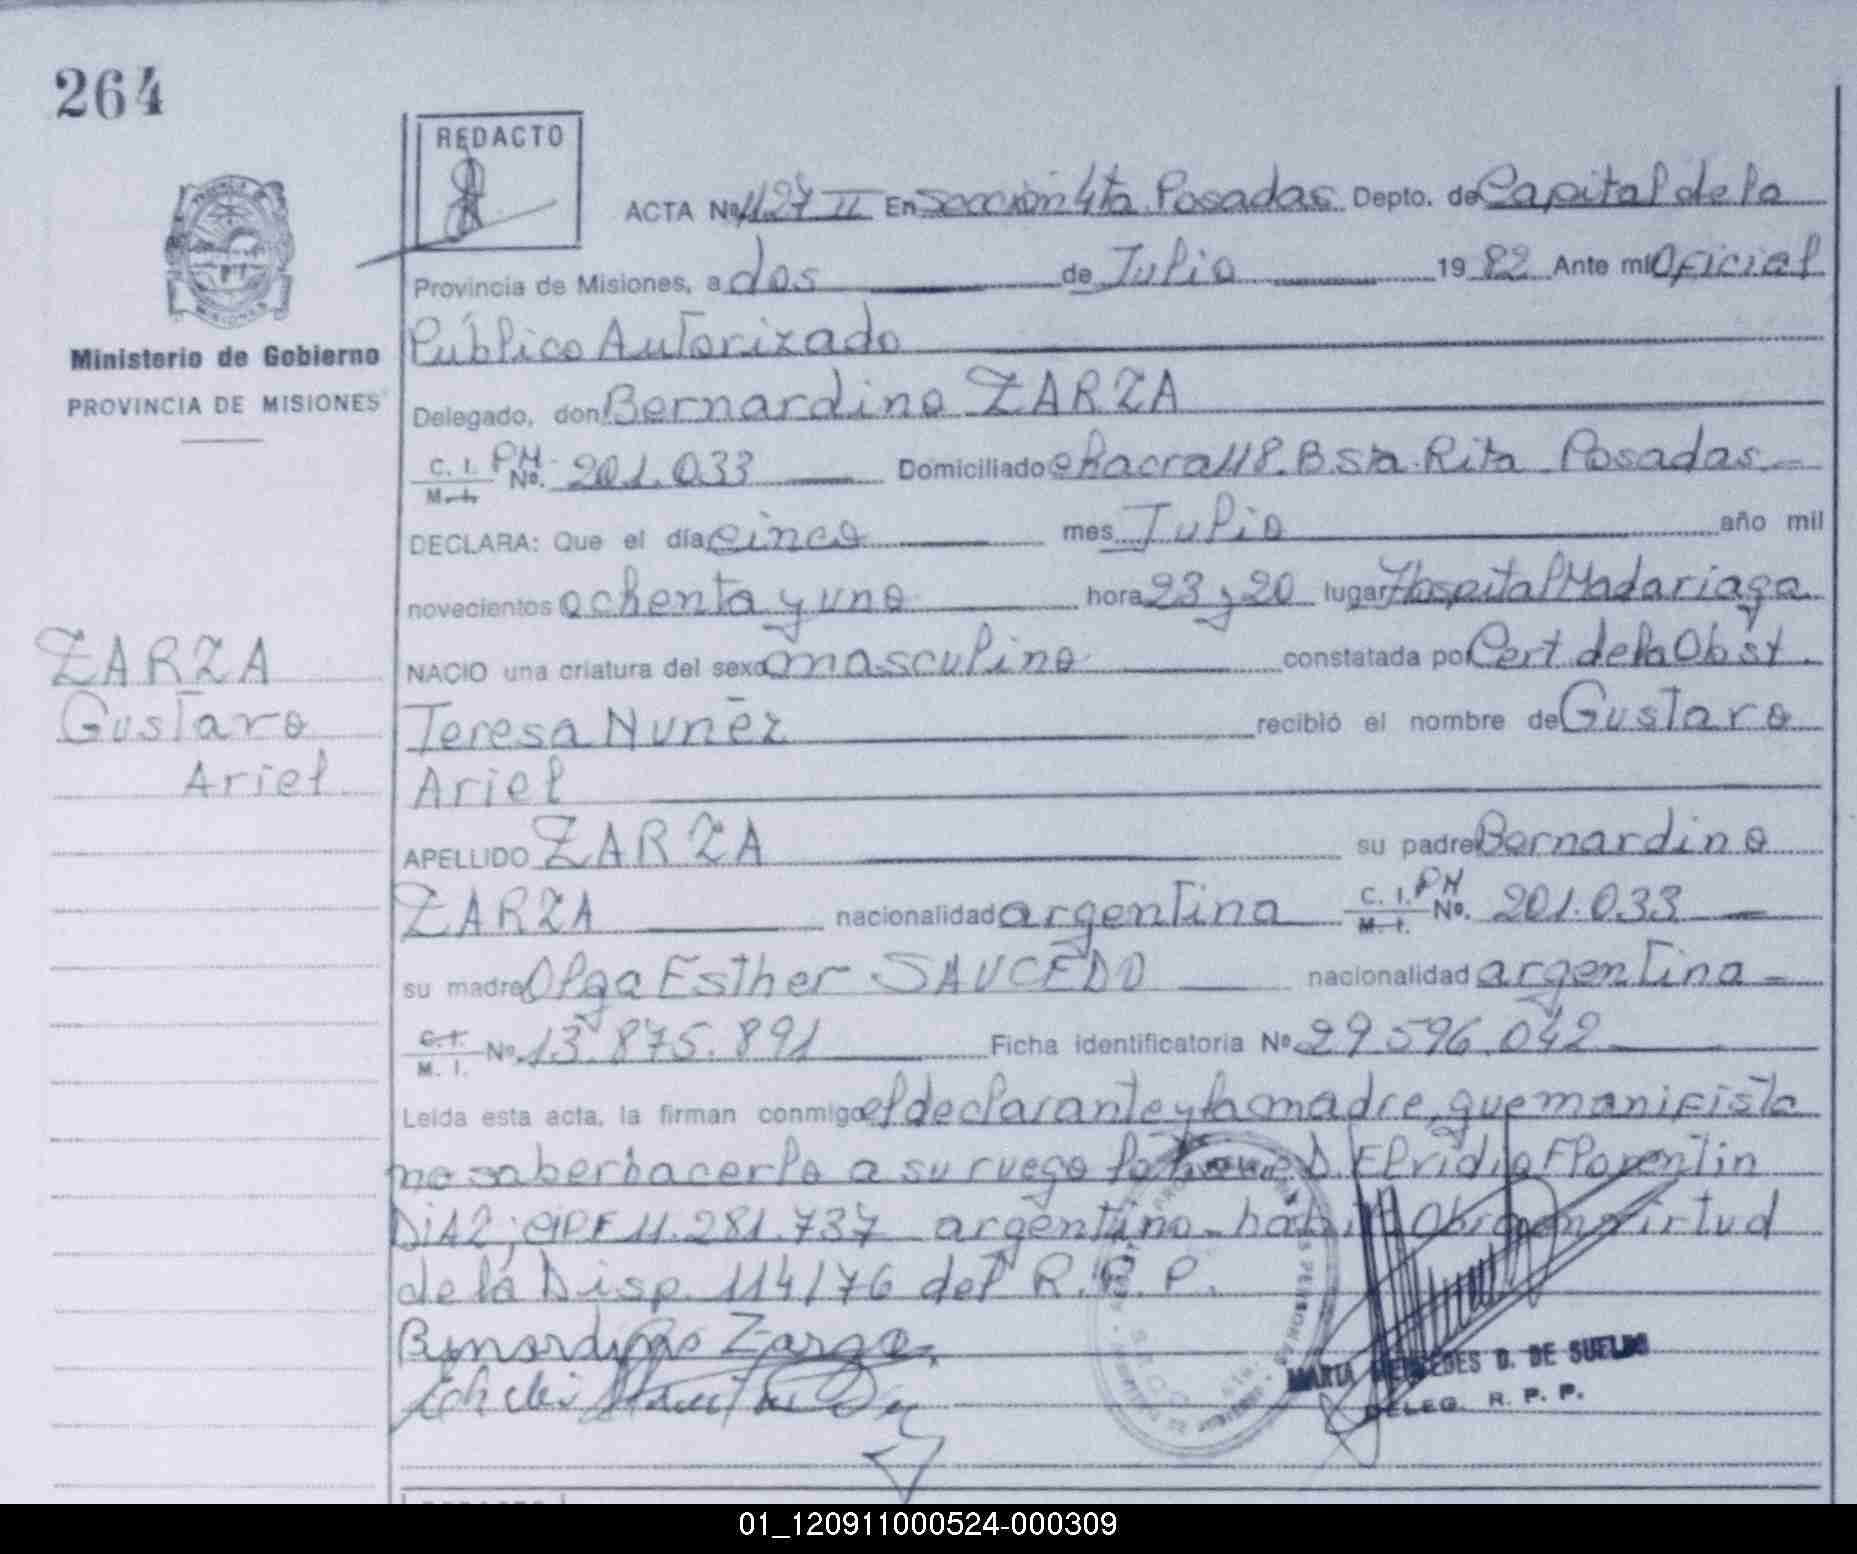 264
REDACTO
ACTA Nº 1127 II En Sección 4ta Posadas Depto. de Capital de la
Provincia de Misiones, a dos de Julio 1982 Ante mi Oficial
Público Autorizado
Ministerio de Gobierno
PROVINCIA DE MISIONES
Delegado, don Bernardino ZARZA
C. I. PM
M. I. Nº. 201.033 Domiciliado chacra 118. B Sta. Rita Posadas
DECLARA: Que el día cinco mes Julio año mil
novecientos ochenta y uno hora 23 y 20 lugar Hospital Madariaga
NACIO una criatura del sexo masculino constatada por Cert de la Obst.
Teresa Nuñez recibió el nombre de Gustavo
Ariel
ZARZA
Gustavo
Ariel
APELLIDO ZARZA su padre Bernardino
ZARZA nacionalidad argentina C. I. PM M. I. Nº. 201.033
su madre Olga Esther SAUCEDO nacionalidad argentina
C. I.
M. I. Nº. 13.875.891 Ficha identificatoria Nº 29.596.042
Leida esta acta, la firman conmigo el declarante y la madre, que manifista
no saber hacerlo a su ruego lo D. Elvidio Florentin
DiAZ; CIPF 11.281.737 argentino habil Obra en virtud
de la Disp. 114/76 del R.P.P.
Bernardino Zarza
MARIA MERCEDES D. DE SUELDO
DELEG. R. P. P.
01_120911000524-000309